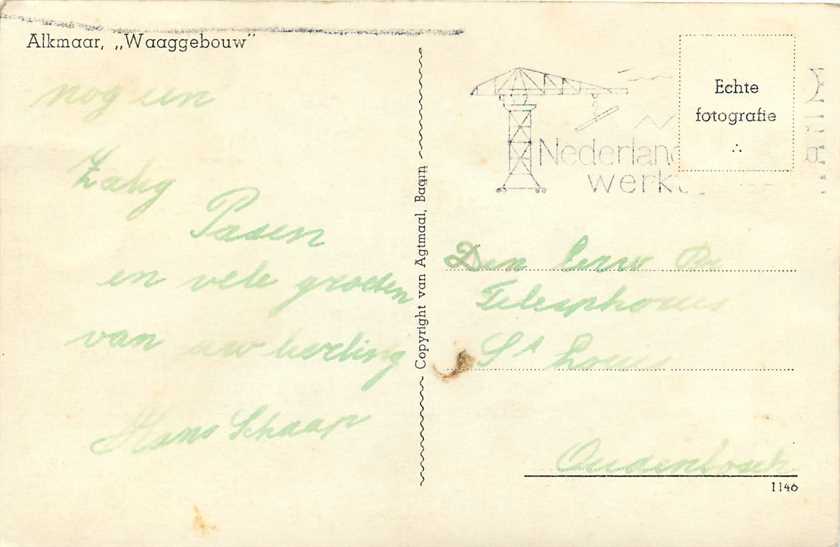 Alkmaar, „Waaggebouw"
nog een
Zalig
Pasen
en vele groeten
van uw leerling
Hans Schaap
Copyright van Agtmaal, Baarn
Echte
fotografie
Nederland
werk
Den Eerw Br
Telesphorus
St Louis
Oudenbosch
1146